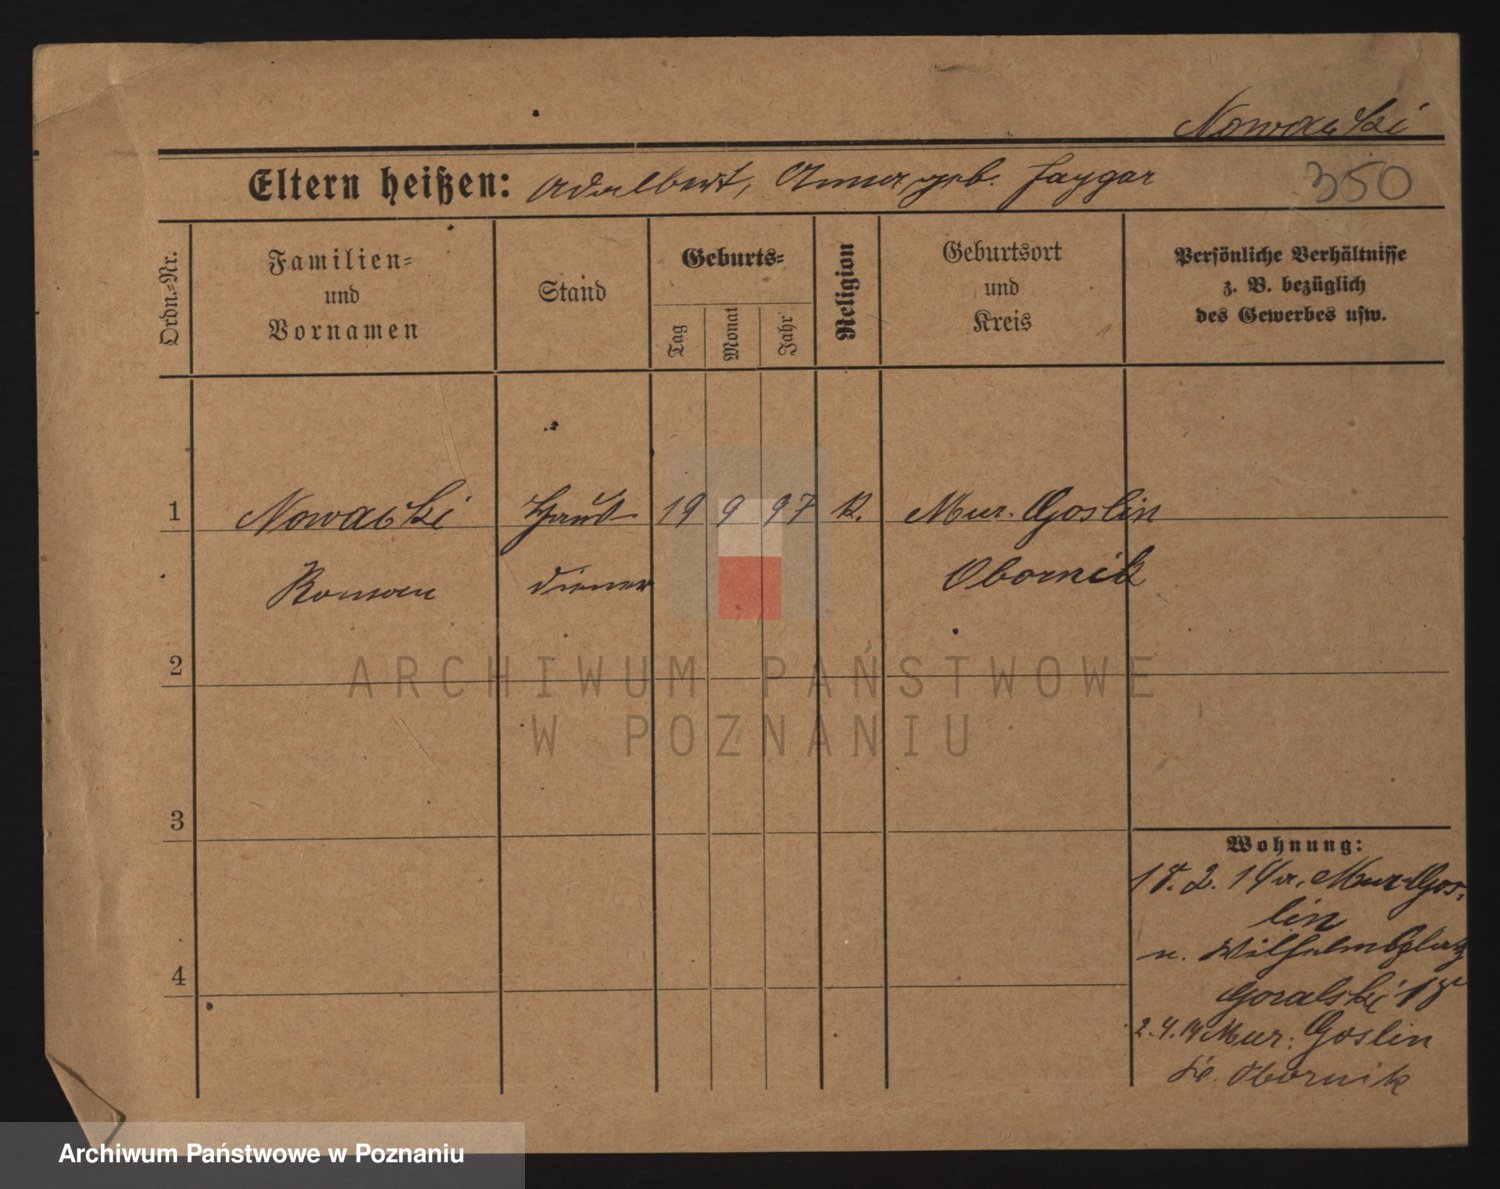 Nowacki
Eltern heißen: Adalbert, Anna, geb. Jaygar
350
Ordn.-Nr.
Familien-
und
Vornamen
Stand
Geburts-
Tag
Monat
Jahr
Religion
Geburtsort
und
Kreis
Persönliche Verhältnisse
z. B. bezüglich
des Gewerbes usw.
1 Nowacki Haus 19 9 97 k. Mur. Goslin
Roman diener Obornik
2
ARCHIWUM PAŃSTWOWE
W POZNANIU
3
Wohnung:
18. 2. 14 a. Mur-Gos-
lin
n. Wilhelmsplatz
Goralski 18
4
2.4.14 Mur. Goslin
Obornik
Archiwum Państwowe w Poznaniu